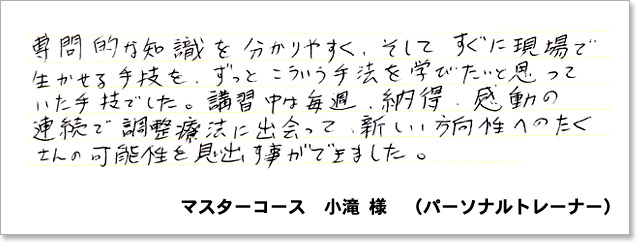 専問的な知識を分かりやすく、そしてすぐに現場で
生かせる手技を、ずっとこういう手法を学びたいと思って
いた手技でした。講習中は毎週、納得、感動の
連続で調整療法に出会って、新しい方向性へのたく
さんの可能性を見出す事ができました。
マスターコース 小滝 様 （パーソナルトレーナー）